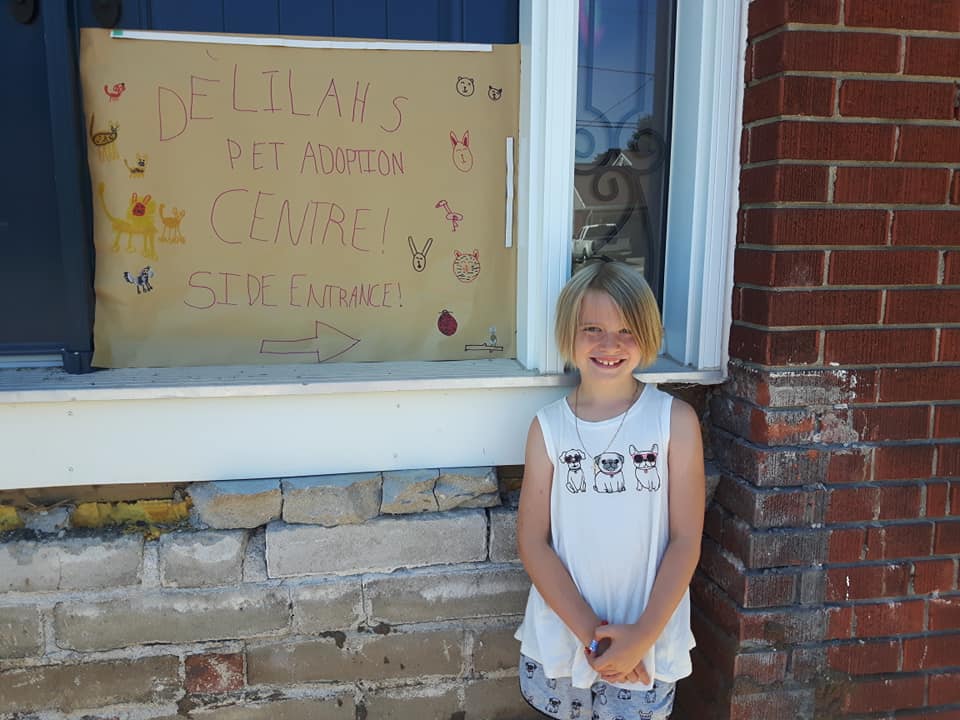 DÉLILAHS
PET ADOPTION
CENTRE!
SIDE ENTRANCE!